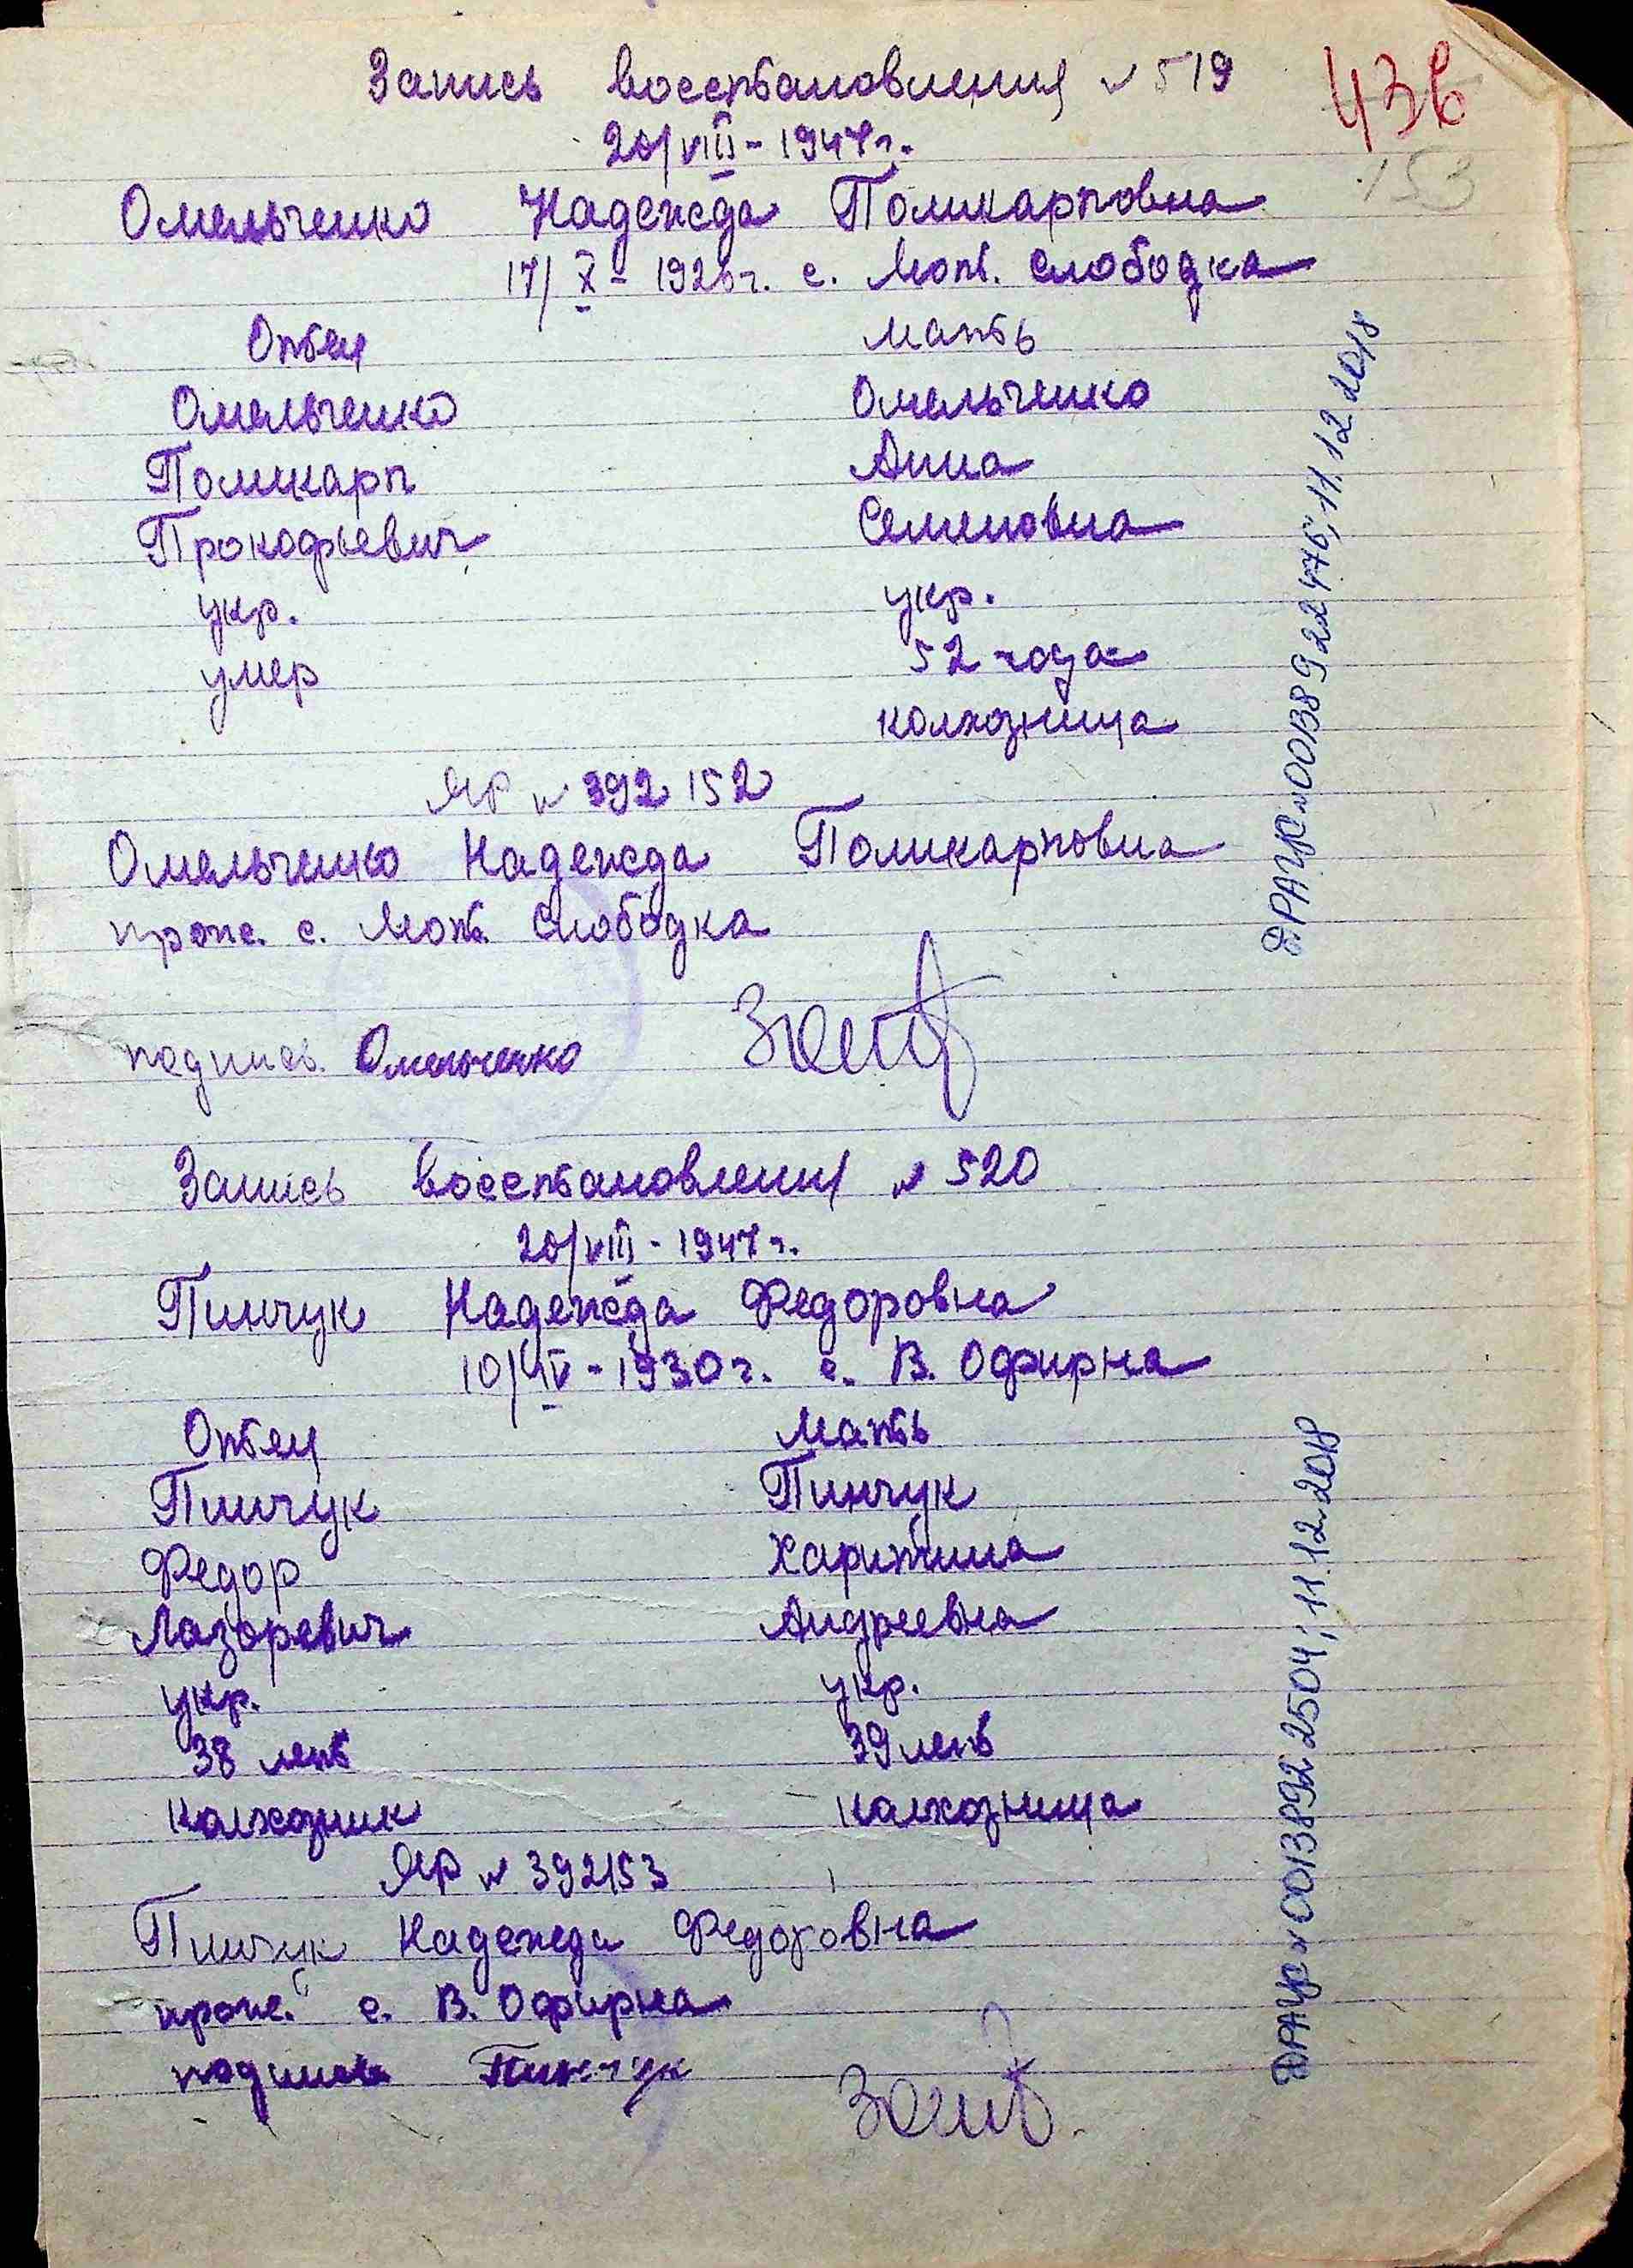 Запись восстановления № 519
436
20/VIII - 1947 г.
153
Омельченко Надежда Поликарповна
17/X - 1926 г. с. Мот. Слободка
Отец Мать
Омельченко Омельченко
Поликарп Анна
Прокофьевич Семеновна
укр. укр.
умер 52 года
колхозница
ЯР № 392152
Омельченко Надежда Поликарповна
прож. с. Мот. Слободка
подпись Омельченко
Запись восстановления № 520
20/VIII - 1947 г.
Пинчук Надежда Федоровна
10/IV - 1930 г. с. В. Офирна
Отец Мать
Пинчук Пинчук
Федор Харитина
Лазоревич Андреевна
укр. укр.
38 лет 39 лет
колхозник колхозница
ЯР № 392153
Пинчук Надежда Федоровна
прож. с. В. Офирна
подпись Пинчук
ДРАЦС № 00138922476; 11.12.2018
ДРАЦС № 00138922504; 11.12.2018